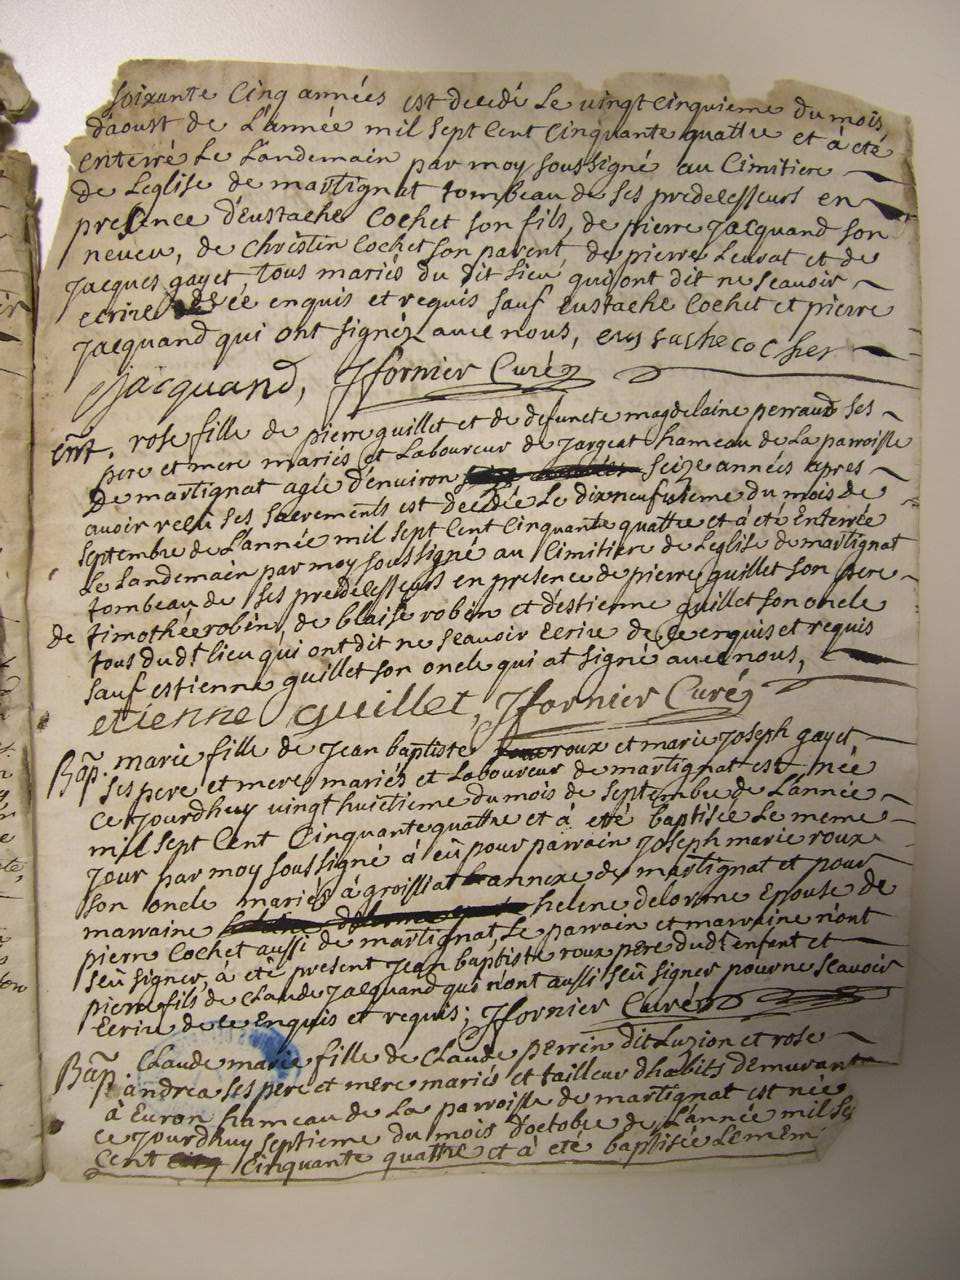 soixante Cinq années est decedé Le vingtcinquieme du mois
d'aoust de L'année mil sept Cent Cinquante quattre et à eté
enterré Le Landemain par moy soussigné au Cimitiere
de Leglise de martignat tombeau de ses predelesseurs en
presence d'Eustache Cochet son fils, de pierre Jacquand son
neveu, de Christin Cochet son parent, de pierre Levrat et de
Jacques gayet, tous mariés du dit Lieu qui ont dit ne scavoir
ecrire de ce enquis et requis sauf Eustache Cochet et pierre
Jacquand qui ont signéz avec nous, eustache cochet
Jacquand, Jfornier Curéz
Ent. rose fille de pierre guillet et de defuncte magdelaine perraud ses
pere et mere mariés et Laboureur de Jargeat hameau de La parroisse
De martignat agée d'environ seize années apres
avoir relù ses sacrements est decedée Le dixneufvieme du mois de
septembre de L'année mil sept Cent Cinquante quattre et à eté Enterrée
Le Landemain par moy soussigné au Cimitiere de Leglise de martignat
tombeau de ses predelesseurs en presence de pierre guillet son pere
de timothée robin, de blaise robin et d'estienne guillet son oncle
tous dudt lieu qui ont dit ne scavoir Ecrire de ce enquis et requis
sauf estienne guillet son oncle qui at signé avec nous,
etienne guillet, Jfornier Curéz
Bap. marie fille de Jean baptiste roux et marie Joseph gayet
ses pere et mere mariés et Laboureur de martignat est née
ce Jourdhuy vingt huictieme du mois de septembre de L'année
mil sept Cent Cinquante quattre et à eté baptisée Le meme
Jour par moy soussigné à eû pour parrain Joseph marie roux
son oncle mariés à groissiat annexe de martignat et pour
marraine helene delorme Epouse de
pierre Cochet aussi de martignat, Le parrain et marraine n'ont
seû signer, à eté present Jean baptiste roux pere dudt enfent et
pierre fils de Claude Jacquand qui n'ont aussi seû signer pour ne scavoir
Ecrire de ce Enquis et requis; Jfornier Curéz
Bap. Claude marie fille de Claude perrin dit Luzion et rose
andrea ses pere et mere mariés et tailleur d'habits demurant
à Evron hameau de La parroisse de martignat est née
ce Jourdhuy septieme du mois d'octobre de L'année mil se
Cent Cinquante quattre et à eté baptisée Le mem